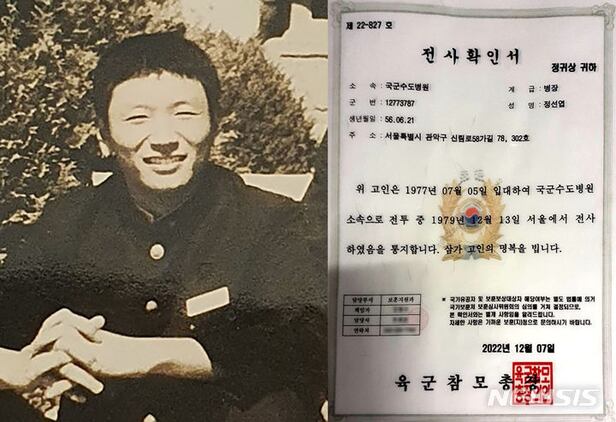 제 22-827 호
전사확인서
정귀상 귀하
소 속 : 국군수도병원 계 급 : 병장
군 번 : 12773787 성 명 : 정선엽
생년월일 : 56.06.21
주 소 : 서울특별시 관악구 신림로58가길 78, 302호
위 고인은 1977년 07월 05일 입대하여 국군수도병원
소속으로 전투 중 1979년 12월 13일 서울에서 전사
하였음을 통지합니다. 삼가 고인의 명복을 빕니다.
담당부서 보훈지원과
책임자
담당자
연락처
※ 국가유공자 및 보훈보상대상자 해당여부는 별도 법률에 의거
국가보훈처 보훈심사위원회의 심의를 거쳐 결정되므로,
본 확인서와는 별개 사항임을 알려드립니다.
자세한 사항은 가까운 보훈(지)청으로 문의하시기 바랍니다.
2022년 12월 07일
육군참모총장
NEWSIS